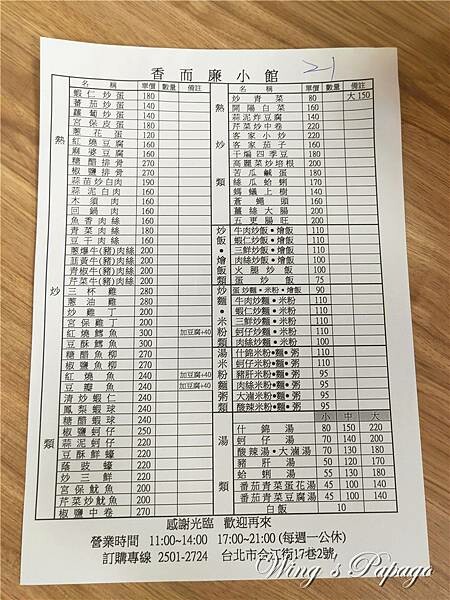 香而廉小館
21
名稱 單價 數量 備註
蝦仁炒蛋 180
番茄炒蛋 140
蘿蔔炒蛋 140
宮保皮蛋 180
蔥花蛋 120
紅燒豆腐 160
麻婆豆腐 160
糖醋排骨 270
椒鹽排骨 270
蒜茄炒白肉 190
蒜泥白肉 160
木須肉 160
回鍋肉 160
魚香肉絲 160
青菜肉絲 180
豆干肉絲 160
蔥爆牛(豬)肉絲 200
韮黃牛(豬)肉絲 200
青椒牛(豬)肉絲 200
芹菜牛(豬)肉絲 200
三杯雞 280
蔥油雞 280
炒雞丁 200
宮保雞丁 200
紅燒鱈魚 300 加豆腐+40
豆酥鱈魚 300
糖醋魚柳 270
椒鹽魚柳 270
紅燒魚 240 加豆腐+40
豆瓣魚 240 加豆腐+40
清炒蝦仁 200
鳳梨蝦球 240
糖醋蝦球 240
椒鹽蚵仔 220
蒜泥蚵仔 200
豆酥鮮蠔 220
蔭豉蠔 220
炒三鮮 220
宮保魷魚 200
芹菜炒魷魚 200
椒鹽中卷 270
熱
炒
類
名稱 單價 數量 備註
炒青菜 80 大150
開陽白菜 160
蒜泥炸豆腐 140
芹菜炒中卷 220
客家小炒 220
客家茄子 160
干煸四季豆 180
高麗菜炒培根 200
苦瓜鹹蛋 180
絲瓜蛤蜊 170
螞蟻上樹 140
蒼蠅頭 160
薑絲大腸 200
五更腸旺 200
熱
炒
類
牛肉炒飯•燴飯 100
蝦仁炒飯•燴飯 110
三鮮炒飯•燴飯 110
肉絲炒飯•燴飯 100
火腿炒飯 100
蛋炒飯 75
炒飯•燴飯類
蛋炒麵•米粉•燴飯 90
牛肉炒麵•米粉 110
蝦仁炒麵•米粉 110
三鮮炒麵•米粉 110
蚵仔炒麵•米粉 110
肉絲炒麵•米粉 100
炒麵•米粉類
什錦米粉•麵•粥 110
蚵仔米粉•麵•粥 110
豬肝米粉•麵•粥 95
肉絲米粉•麵•粥 95
大滷米粉•麵•粥 95
酸辣米粉•麵•粥 95
湯米粉麵粥類
小 中 大
什錦湯 80 150 220
蚵仔湯 70 140 200
酸辣湯•大滷湯 50 120 170
豬肝湯 70 130 180
蛤蜊湯 55 130 180
番茄青菜蛋花湯 45 100 140
番茄青菜豆腐湯 45 100 140
湯
類
白飯 10
感謝光臨 歡迎再來
營業時間 11:00~14:00 17:00~21:00(每週一公休)
訂購專線 2501-2724 台北市合江街17巷2號
Wing's Papago